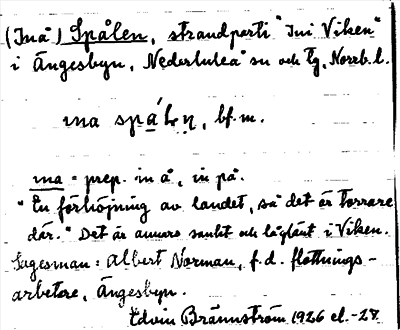 (Inå) Spålen, strandparti "Ini Viken"
i Ängesbyn, Nederluleå sn och tg, Norrb. l.
ina spá̱lₑn̩, bf. m.
ina = prep. in å, in på.
"En förhöjning av landet, så det är torrare
där." Det är annars sankt och låglänt i Viken.
Sagesman: Albert Norman, f.d. flottnings-
arbetare, Ängesbyn.
Edvin Brännström 1926 el. -27